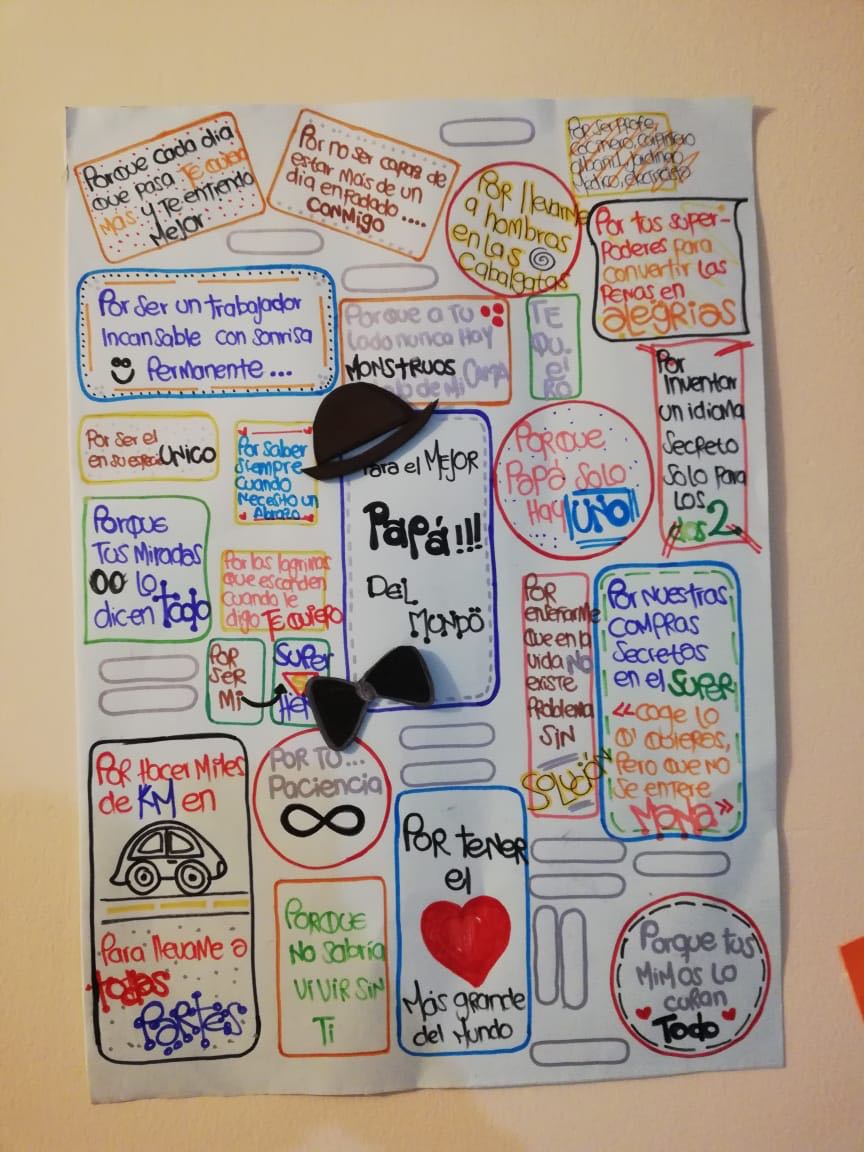 Porque cada dia
que pasa Te quiero
Más y Te entiendo
Mejor
Por no ser capaz de
estar más de un
dia enfadado ....
CONMigo
Por ser Profe,
cocinero, carpintero
albañil, jardinero
Medico,
POR llevarme
a hombros
en las
Cabalgatas
Por tus super-
Poderes para
convertir las
Penas en
alegrias
Por Ser un trabajador
Incansable con sonrisa
Permanente ...
Porque a Tu
lado nunca Hay
MONSTRUOS
de Mi CAMA
TE
QU.
ei
RO
Por
Inventar
un idioma
Secreto
Solo Para
LOS
dos 2
Por Ser el
en su especie UNICO
Por saber
Siempre
Cuando
Necesito un
Abrazo
Para el MEJOR
Papá!!!
DEL
MUNDO
PORQUE
PaPá Solo
Hay UNO
PorQue
Tus Miradas
lo
dicen todo
Por las lagrimas
que esconden
Cuando te
digo TE QUIERO
POR
SER
Mi
SUPER
POR
enseñarme
Que en la
vida NO
existe
Problema
SiN
SOLUCIÓN
Por Nuestras
COMPRAS
Secretas
en el SUPER
"coge lo
Q' Quieras,
Pero Que No
Se entere
MaMa"
POR Hacer Miles
de KM en
Para llevarme a
todas
PaRtes
POR TU...
Paciencia
PORQUE
No Sabría
ViViR SiN
Ti
POR TENER
el
Más grande
del Mundo
Porque tus
MiMos Lo
curan
Todo